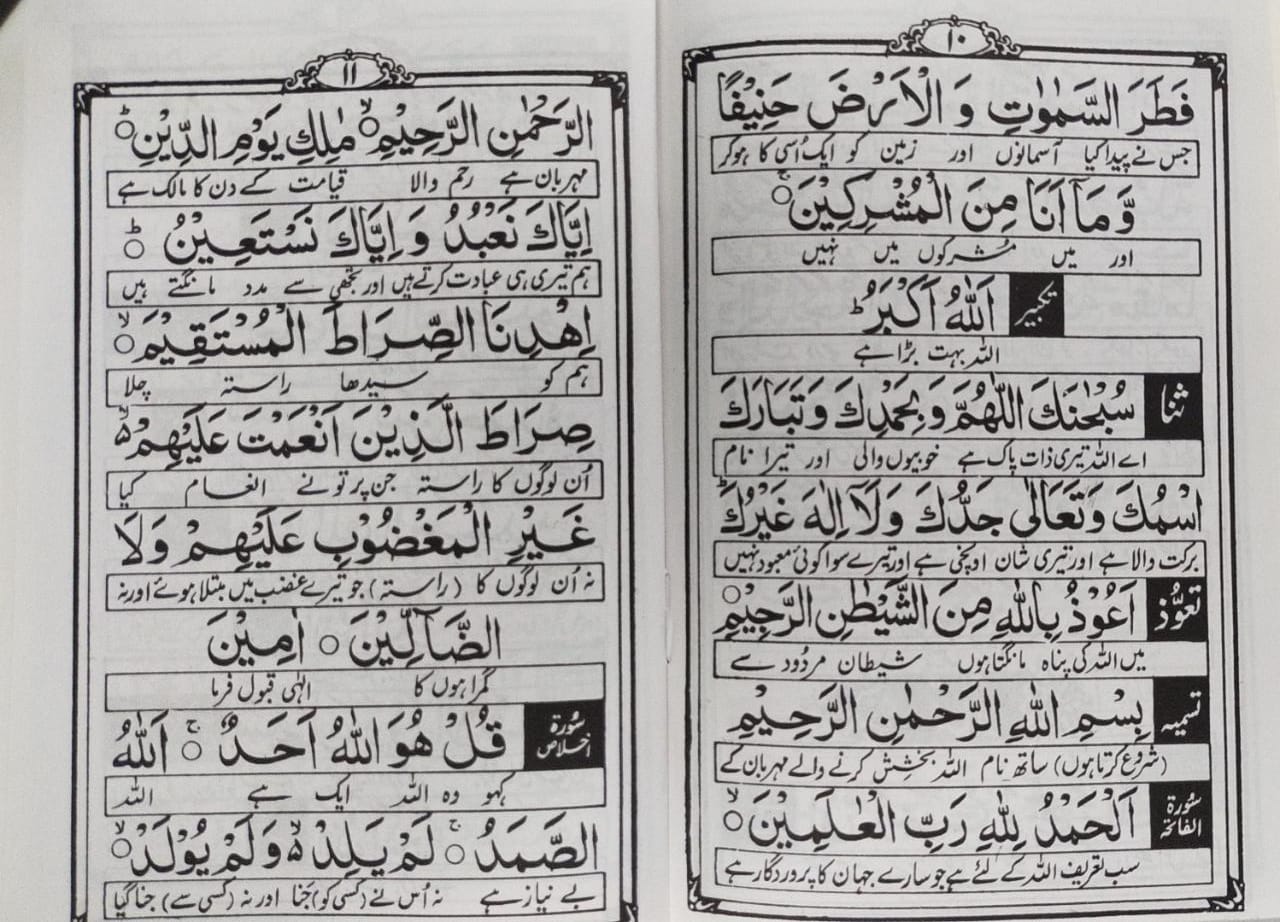 ۱۰
فَطَرَ السَّمٰوٰتِ وَ الْاَرْضَ حَنِيْفًا
جس نے پیدا کیا آسمانوں اور زمین کو ایک اُسی کا ہو کر
وَّ مَاۤ اَنَا مِنَ الْمُشْرِكِيْنَ ۚ○
اور میں مُشرکوں میں نہیں
تکبیر اَللّٰهُ اَكْبَرُ ؕ
اللہ بہت بڑا ہے
ثنا سُبْحٰنَكَ اللّٰهُمَّ وَ بِحَمْدِكَ وَ تَبَارَكَ
اے اللہ تیری ذات پاک ہے خوبیوں والی اور تیرا نام
اسْمُكَ وَ تَعَالٰى جَدُّكَ وَ لَاۤ اِلٰهَ غَيْرُكَ ؕ
برکت والا ہے اور تیری شان اونچی ہے اور تیرے سوا کوئی معبود نہیں
تعوُّذ اَعُوْذُ بِاللّٰهِ مِنَ الشَّيْطٰنِ الرَّجِيْمِ ○
میں اللہ کی پناہ مانگتا ہوں شیطان مردُود سے
تسمیہ بِسْمِ اللّٰهِ الرَّحْمٰنِ الرَّحِيْمِ
(شروع کرتا ہوں) ساتھ نام اللہ بخشِش کرنے والے مہربان کے
سُورة الفاتحہ اَلْحَمْدُ لِلّٰهِ رَبِّ الْعٰلَمِيْنَ ۙ○
سب تعریف اللہ کے لئے ہے جو سارے جہان کا پروردگار ہے
۱۱
الرَّحْمٰنِ الرَّحِيْمِ ۙ○ مٰلِكِ يَوْمِ الدِّيْنِ ؕ○
مہربان ہے رحم والا قیامت کے دن کا مالک ہے
اِيَّاكَ نَعْبُدُ وَ اِيَّاكَ نَسْتَعِيْنُ ؕ○
ہم تیری ہی عبادت کرتے ہیں اور تجھی سے مدد مانگتے ہیں
اِهْدِنَا الصِّرَاطَ الْمُسْتَقِيْمَ ۙ○
ہم کو سیدھا راستہ چلا
صِرَاطَ الَّذِيْنَ اَنْعَمْتَ عَلَيْهِمْ ۙ۵
اُن لوگوں کا راستہ جن پر تو نے انعام کیا
غَيْرِ الْمَغْضُوْبِ عَلَيْهِمْ وَ لَا
نہ اُن لوگوں کا (راستہ) جو تیرے غضب میں مبتلا ہوئے اور نہ
الضَّآلِّيْنَ ○ اٰمِيْنَ
گمراہوں کا الٰہی قبول فرما
سُورة اخلاص قُلْ هُوَ اللّٰهُ اَحَدٌ ۚ○ اَللّٰهُ
کہو وہ اللہ ایک ہے اللہ
الصَّمَدُ ۚ○ لَمْ يَلِدْ ۙ۵ وَ لَمْ يُوْلَدْ ۙ○
بے نیاز ہے نہ اُس نے (کسی کو) جَنا اور نہ (کسی سے) جنا گیا